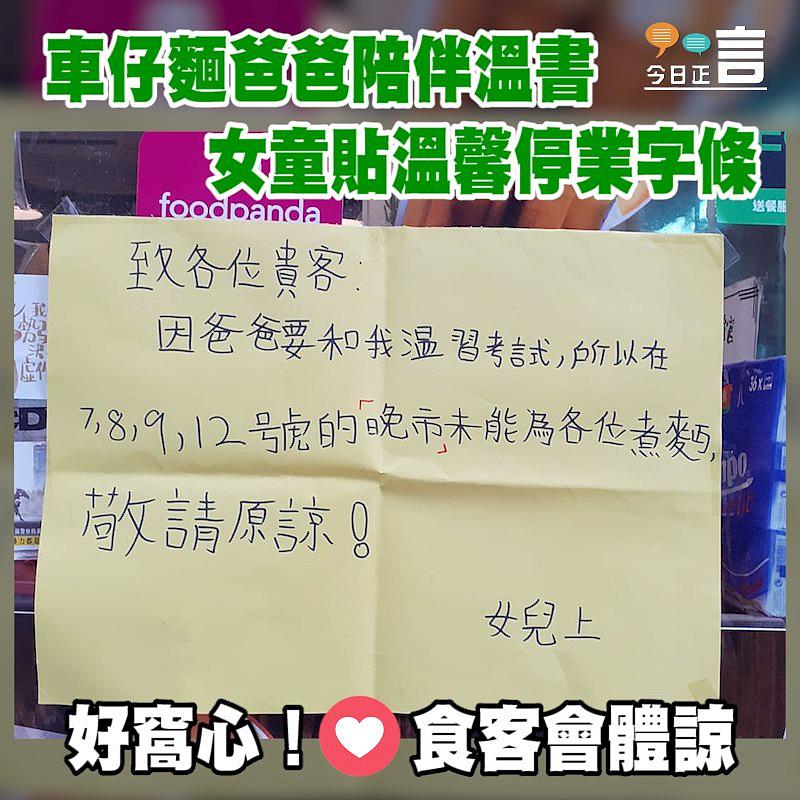 車仔麵爸爸陪伴溫書
今日正言
女童貼溫馨停業字條
foodpanda
送餐服
致各位貴客:
因爸爸要和我溫習考試,所以在
7,8,9,12號的「晚市」未能為各位煮麵,
敬請原諒!
女兒上
36x
好窩心!
食客會體諒